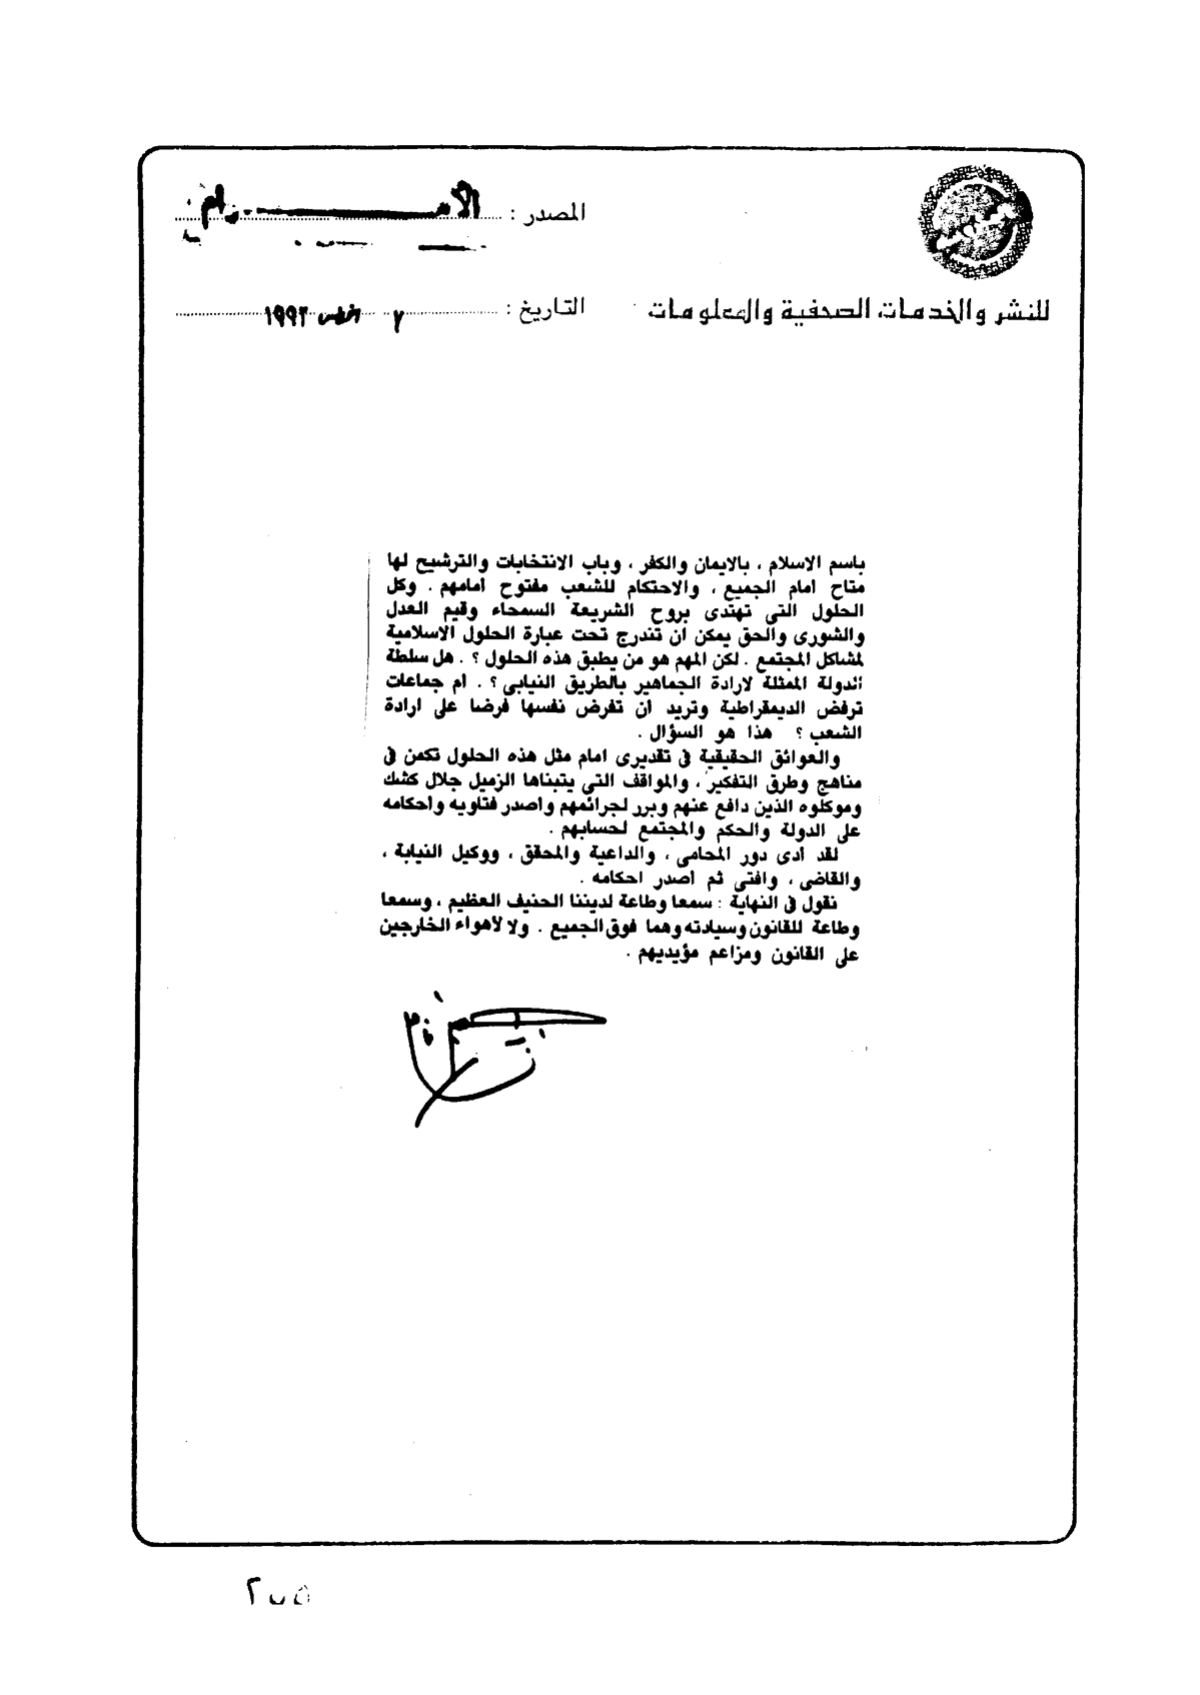 المصدر : الأهرام
للنشر والخدمات الصحفية والمعلومات
التاريخ : ٧ اغسطس ١٩٩٢
باسم الاسلام ، بالايمان والكفر ، وباب الانتخابات والترشيح لها
متاح امام الجميع ، والاحتكام للشعب مفتوح امامهم . وكل
الحلول التى تهتدى بروح الشريعة السمحاء وقيم العدل
والشورى والحق يمكن ان تندرج تحت عبارة الحلول الاسلامية
لمشاكل المجتمع . لكن المهم هو من يطبق هذه الحلول ؟ . هل سلطة
الدولة الممثلة لارادة الجماهير بالطريق النيابى ؟ . ام جماعات
ترفض الديمقراطية وتريد ان تفرض نفسها فرضا على ارادة
الشعب ؟ هذا هو السؤال .
والعوائق الحقيقية فى تقديرى امام مثل هذه الحلول تكمن فى
مناهج وطرق التفكير ، والمواقف التى يتبناها الزميل جلال كشك
وموكلوه الذين دافع عنهم وبرر لجرائمهم واصدر فتاويه واحكامه
على الدولة والحكم والمجتمع لحسابهم .
لقد ادى دور المحامى ، والداعية والمحقق ، ووكيل النيابة ،
والقاضى ، وافتى ثم اصدر احكامه .
نقول فى النهاية : سمعا وطاعة لديننا الحنيف العظيم ، وسمعا
وطاعة للقانون وسيادته وهما فوق الجميع . ولا لأهواء الخارجين
على القانون ومزاعم مؤيديهم .